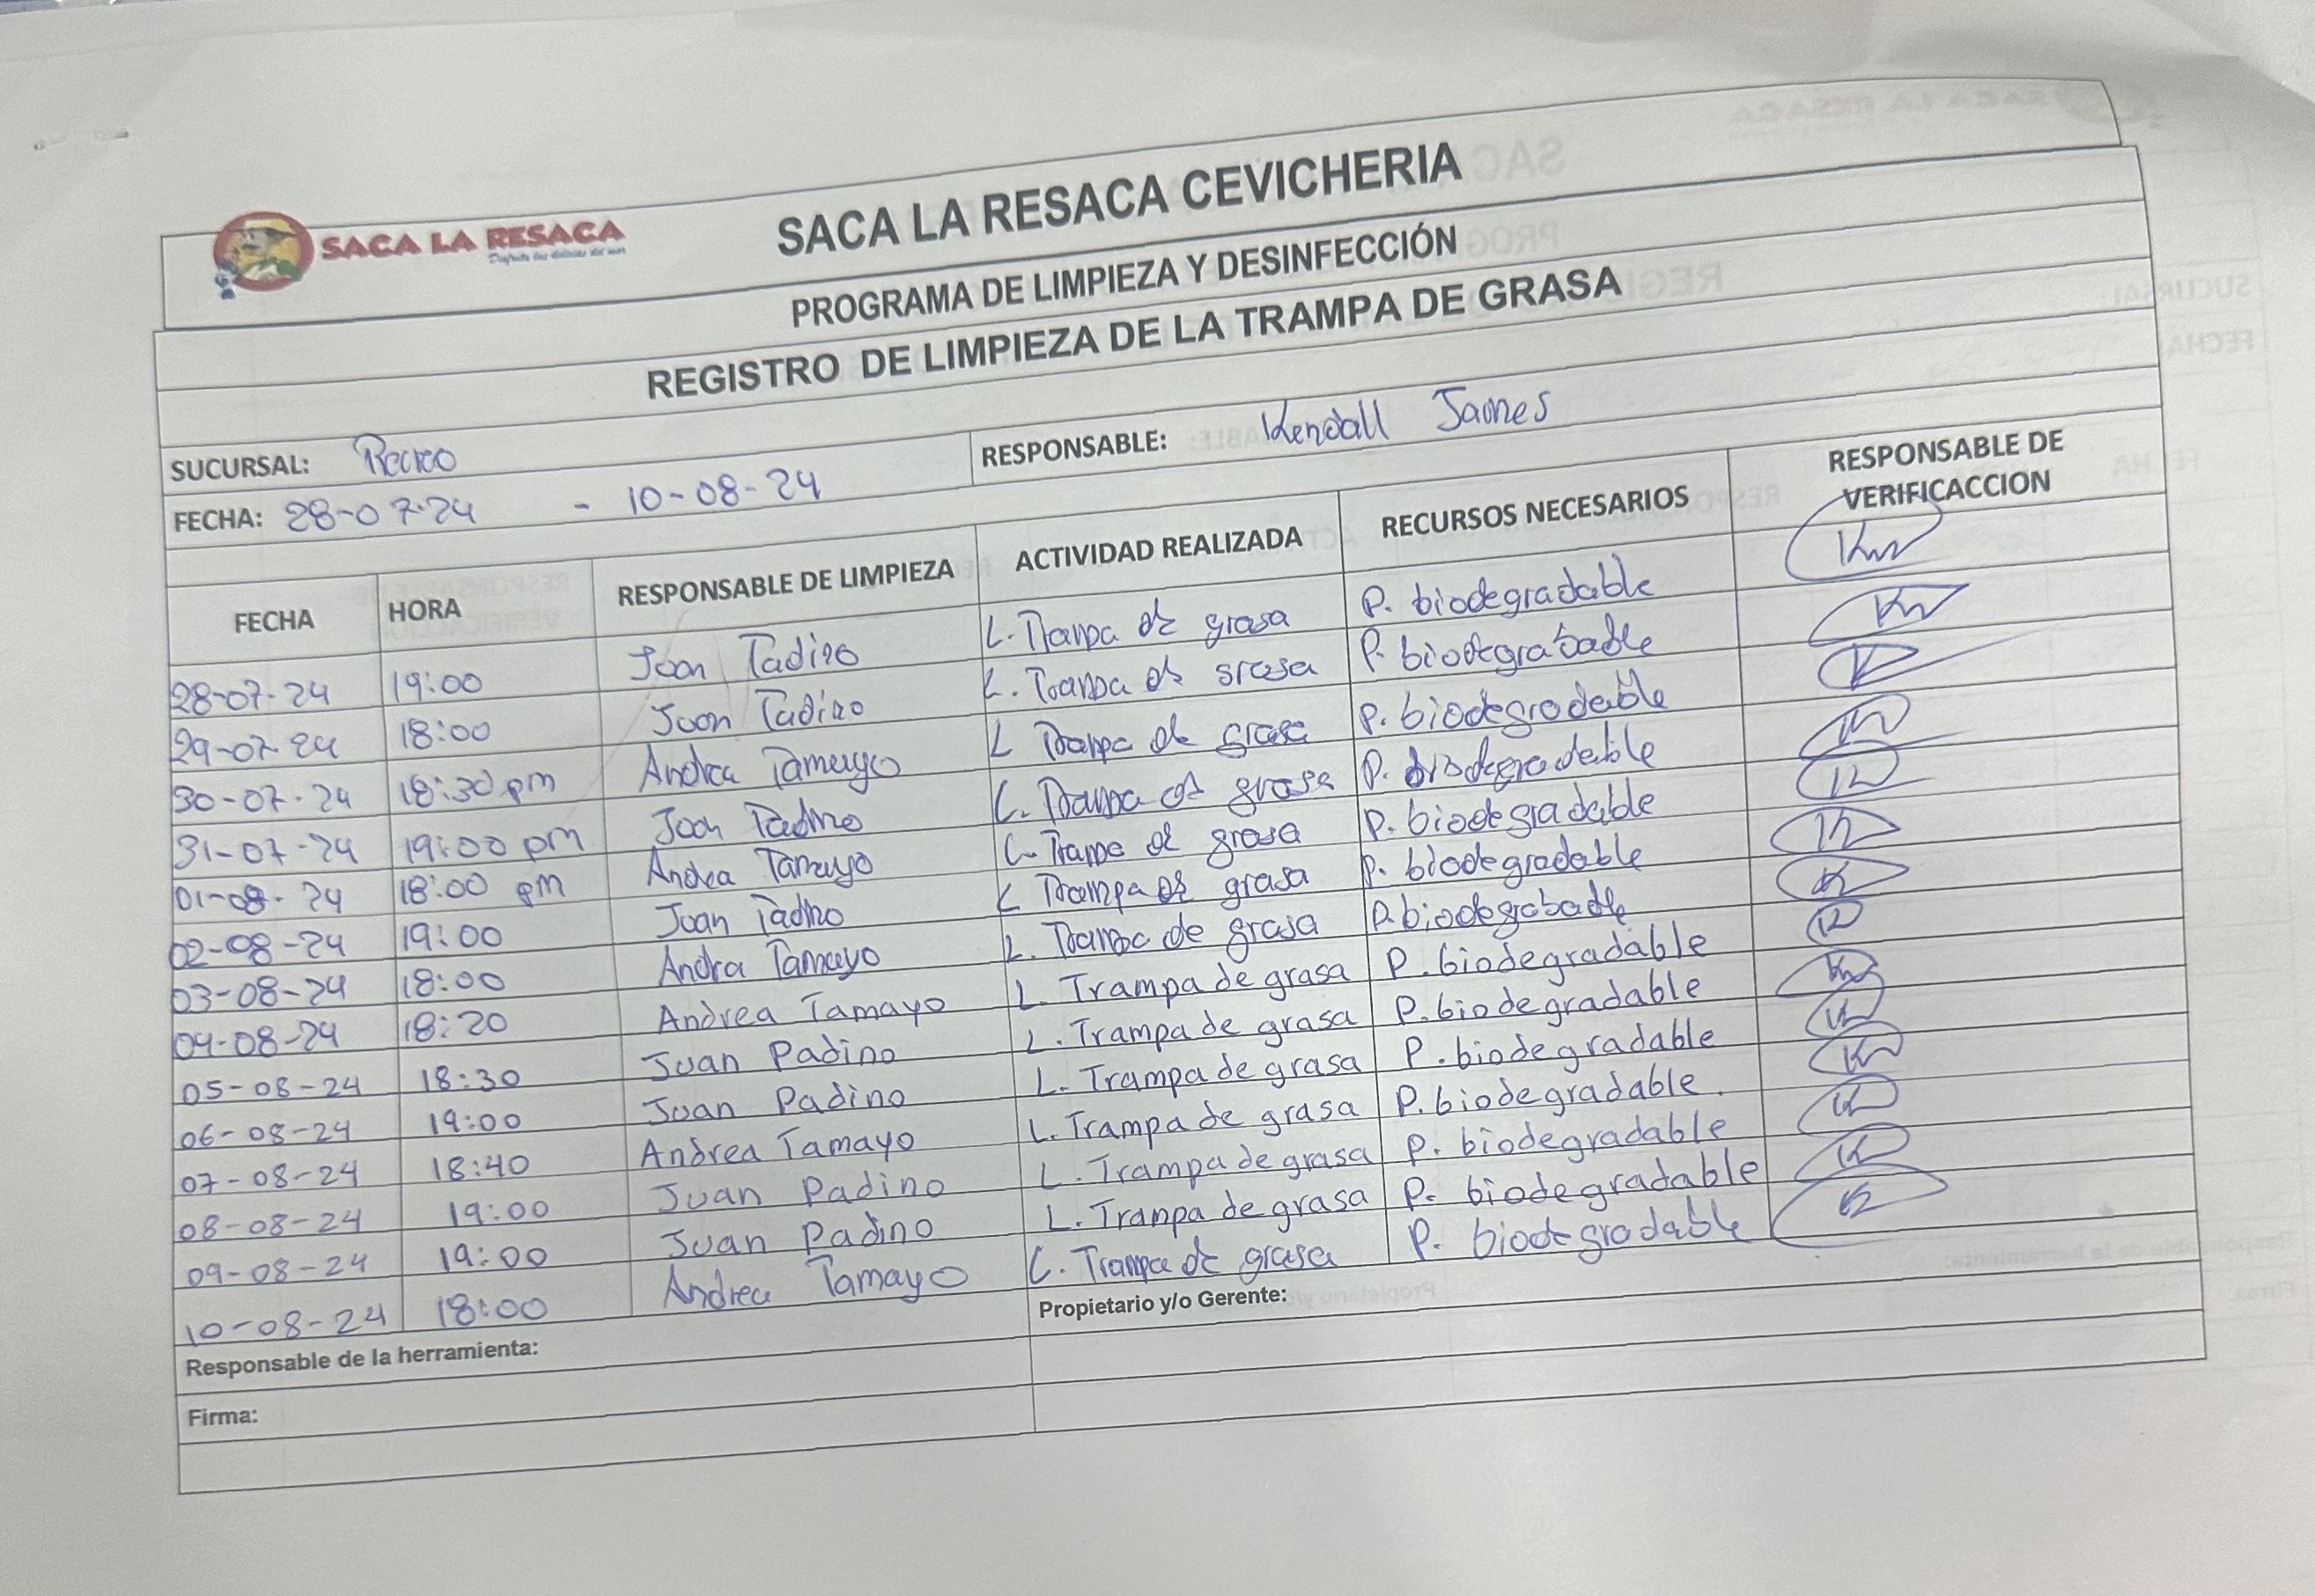 SACA LA RESACA
Disfruta las delicias del mar
SACA LA RESACA CEVICHERIA
PROGRAMA DE LIMPIEZA Y DESINFECCIÓN
REGISTRO DE LIMPIEZA DE LA TRAMPA DE GRASA
SUCURSAL: Recreo RESPONSABLE: Kendall James
FECHA: 28-07-24 - 10-08-24
FECHA HORA RESPONSABLE DE LIMPIEZA ACTIVIDAD REALIZADA RECURSOS NECESARIOS RESPONSABLE DE VERIFICACCION
28-07-24 19:00 Juan Padino L. Trampa de grasa P. biodegradable
29-07-24 18:00 Juan Padino L. Trampa de grasa P. biodegrabable
30-07-24 18:30 pm Andrea Tamayo L Trampa de grasa P. biodegradable
31-07-24 19:00 pm Juan Padino L. Trampa de grasa P. biodegradable
01-08-24 18:00 pm Andrea Tamayo L. Trampa de grasa P. biodegradable
02-08-24 19:00 Juan Padino L Trampa de grasa P. biodegradable
03-08-24 18:00 Andra Tamayo L. Trampa de grasa P. biodegrabable
04-08-24 18:20 Andrea Tamayo L. Trampa de grasa P. biodegradable
05-08-24 18:30 Juan Padino L. Trampa de grasa P. biodegradable
06-08-24 19:00 Juan Padino L. Trampa de grasa P. biodegradable
07-08-24 18:40 Andrea Tamayo L. Trampa de grasa P. biodegradable.
08-08-24 19:00 Juan Padino L. Trampa de grasa P. biodegradable
09-08-24 19:00 Juan Padino L. Trampa de grasa P. biodegradable
10-08-24 18:00 Andrea Tamayo L. Trampa de grasa P. biodegradable
Responsable de la herramienta: Propietario y/o Gerente:
Firma: